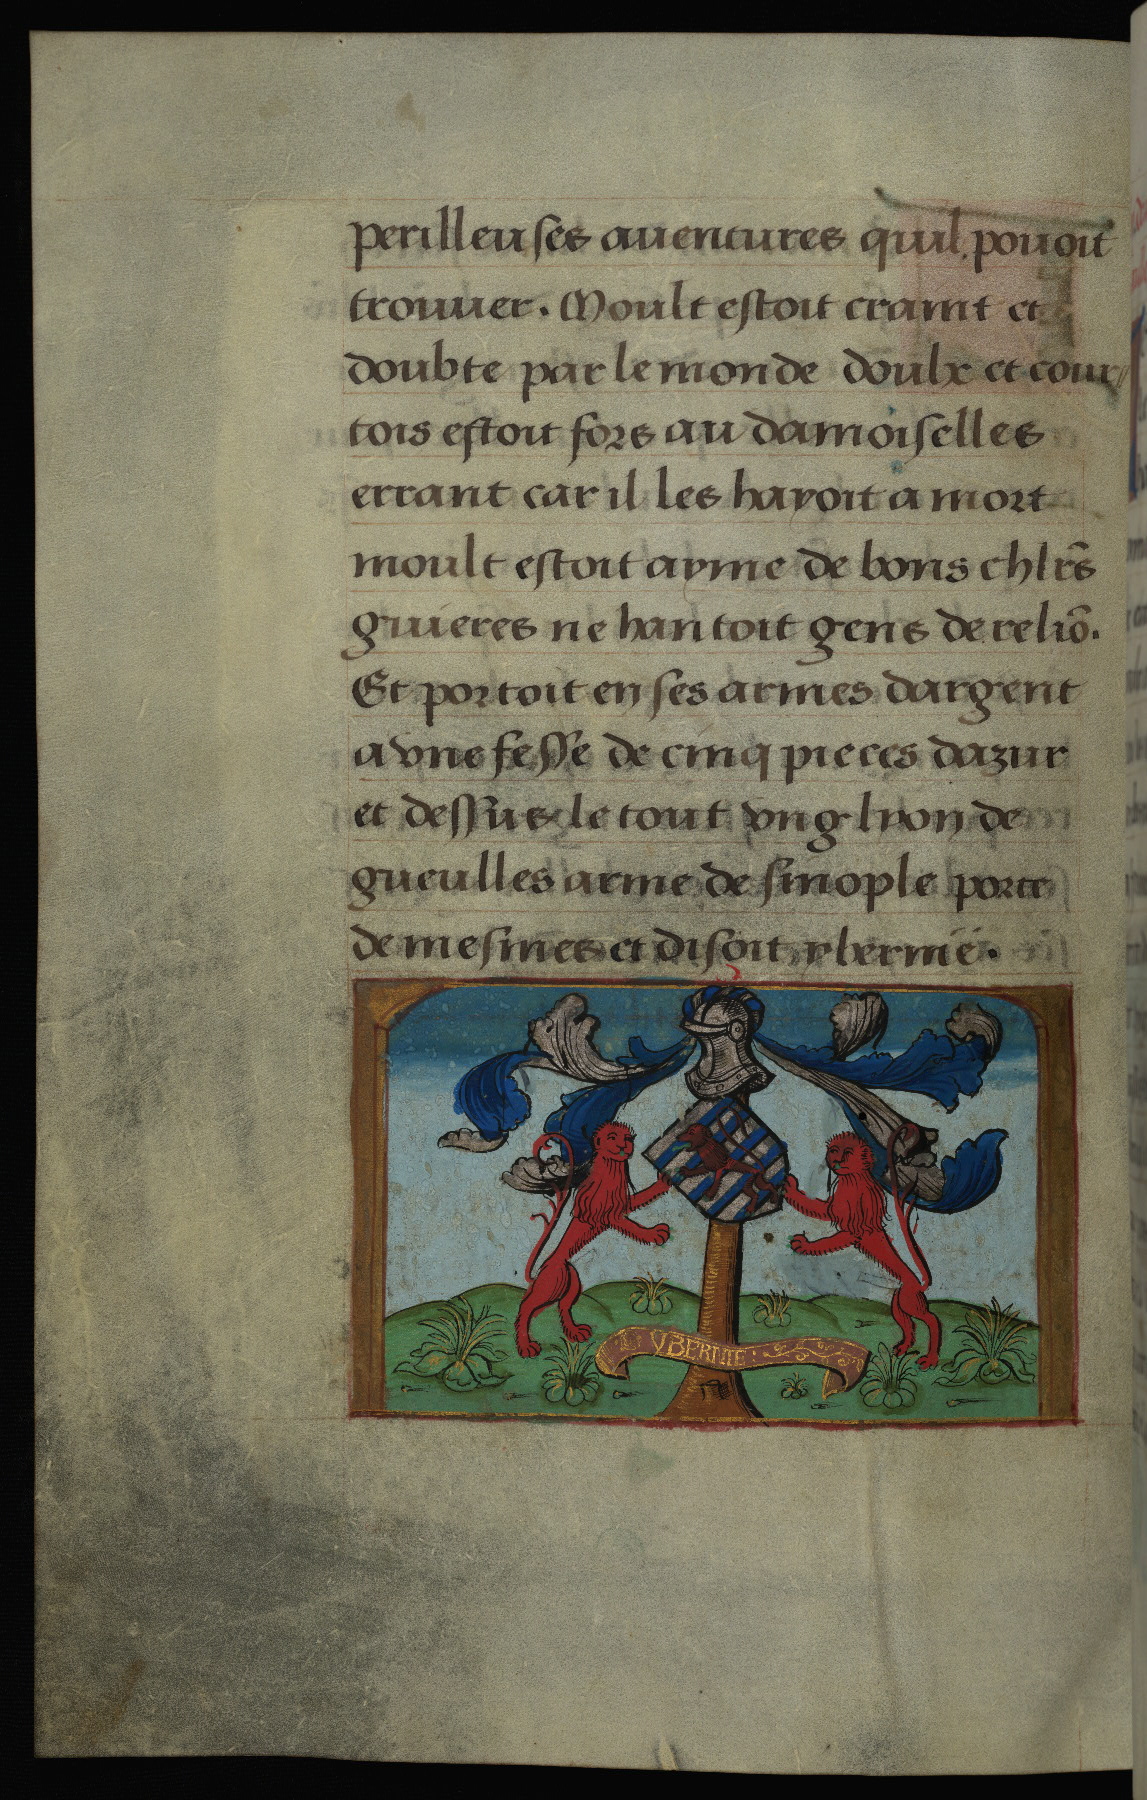 perilleuses auentures quil pouoit
trouuer. Moult estoit craint et
doubte par le monde doulx et cour
tois estoit fors au damoiselles
errant car il les hayoit a mort
moult estoit ayme de bons chlrs̃
guieres ne hantoit gens de reliõ.
Et portoit en ses armes dargent
a vne fesse de cinq pieces dazur
et dessus le tout vng lyon de
gueulles arme de sinople porte
de mesmes et disoit yberniẽ.
YBERNIE: